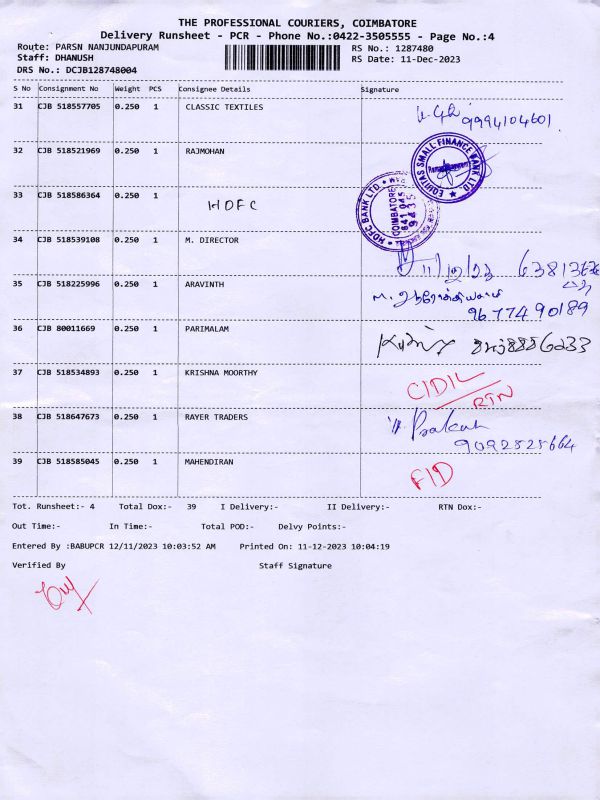 THE PROFESSIONAL COURIERS, COIMBATORE
Delivery Runsheet - PCR - Phone No.:0422-3505555 - Page No.:4
Route: PARSN NANJUNDAPURAM RS No.: 1287480
Staff: DHANUSH RS Date: 11-Dec-2023
DRS No.: DCJB128748004
S No Consignment No Weight PCS Consignee Details Signature
31 CJB 518557705 0.250 1 CLASSIC TEXTILES
9994104601
32 CJB 518521969 0.250 1 RAJMOHAN
EQUITAS SMALL FINANCE BANK LTD
33 CJB 518586364 0.250 1 HDFC
HDFC BANK LTD
COIMBATORE
641 045
9435
34 CJB 518539108 0.250 1 M. DIRECTOR
11/12/23
35 CJB 518225996 0.250 1 ARAVINTH
96774 90189
36 CJB 80011669 0.250 1 PARIMALAM
37 CJB 518534893 0.250 1 KRISHNA MOORTHY
CIDIL
RTN
38 CJB 518647673 0.250 1 RAYER TRADERS
Prakash
9092828664
39 CJB 518585045 0.250 1 MAHENDIRAN
FID
Tot. Runsheet:- 4 Total Dox:- 39 I Delivery:- II Delivery:- RTN Dox:-
Out Time:- In Time:- Total POD:- Delvy Points:-
Entered By :BABUPCR 12/11/2023 10:03:52 AM Printed On: 11-12-2023 10:04:19
Verified By Staff Signature